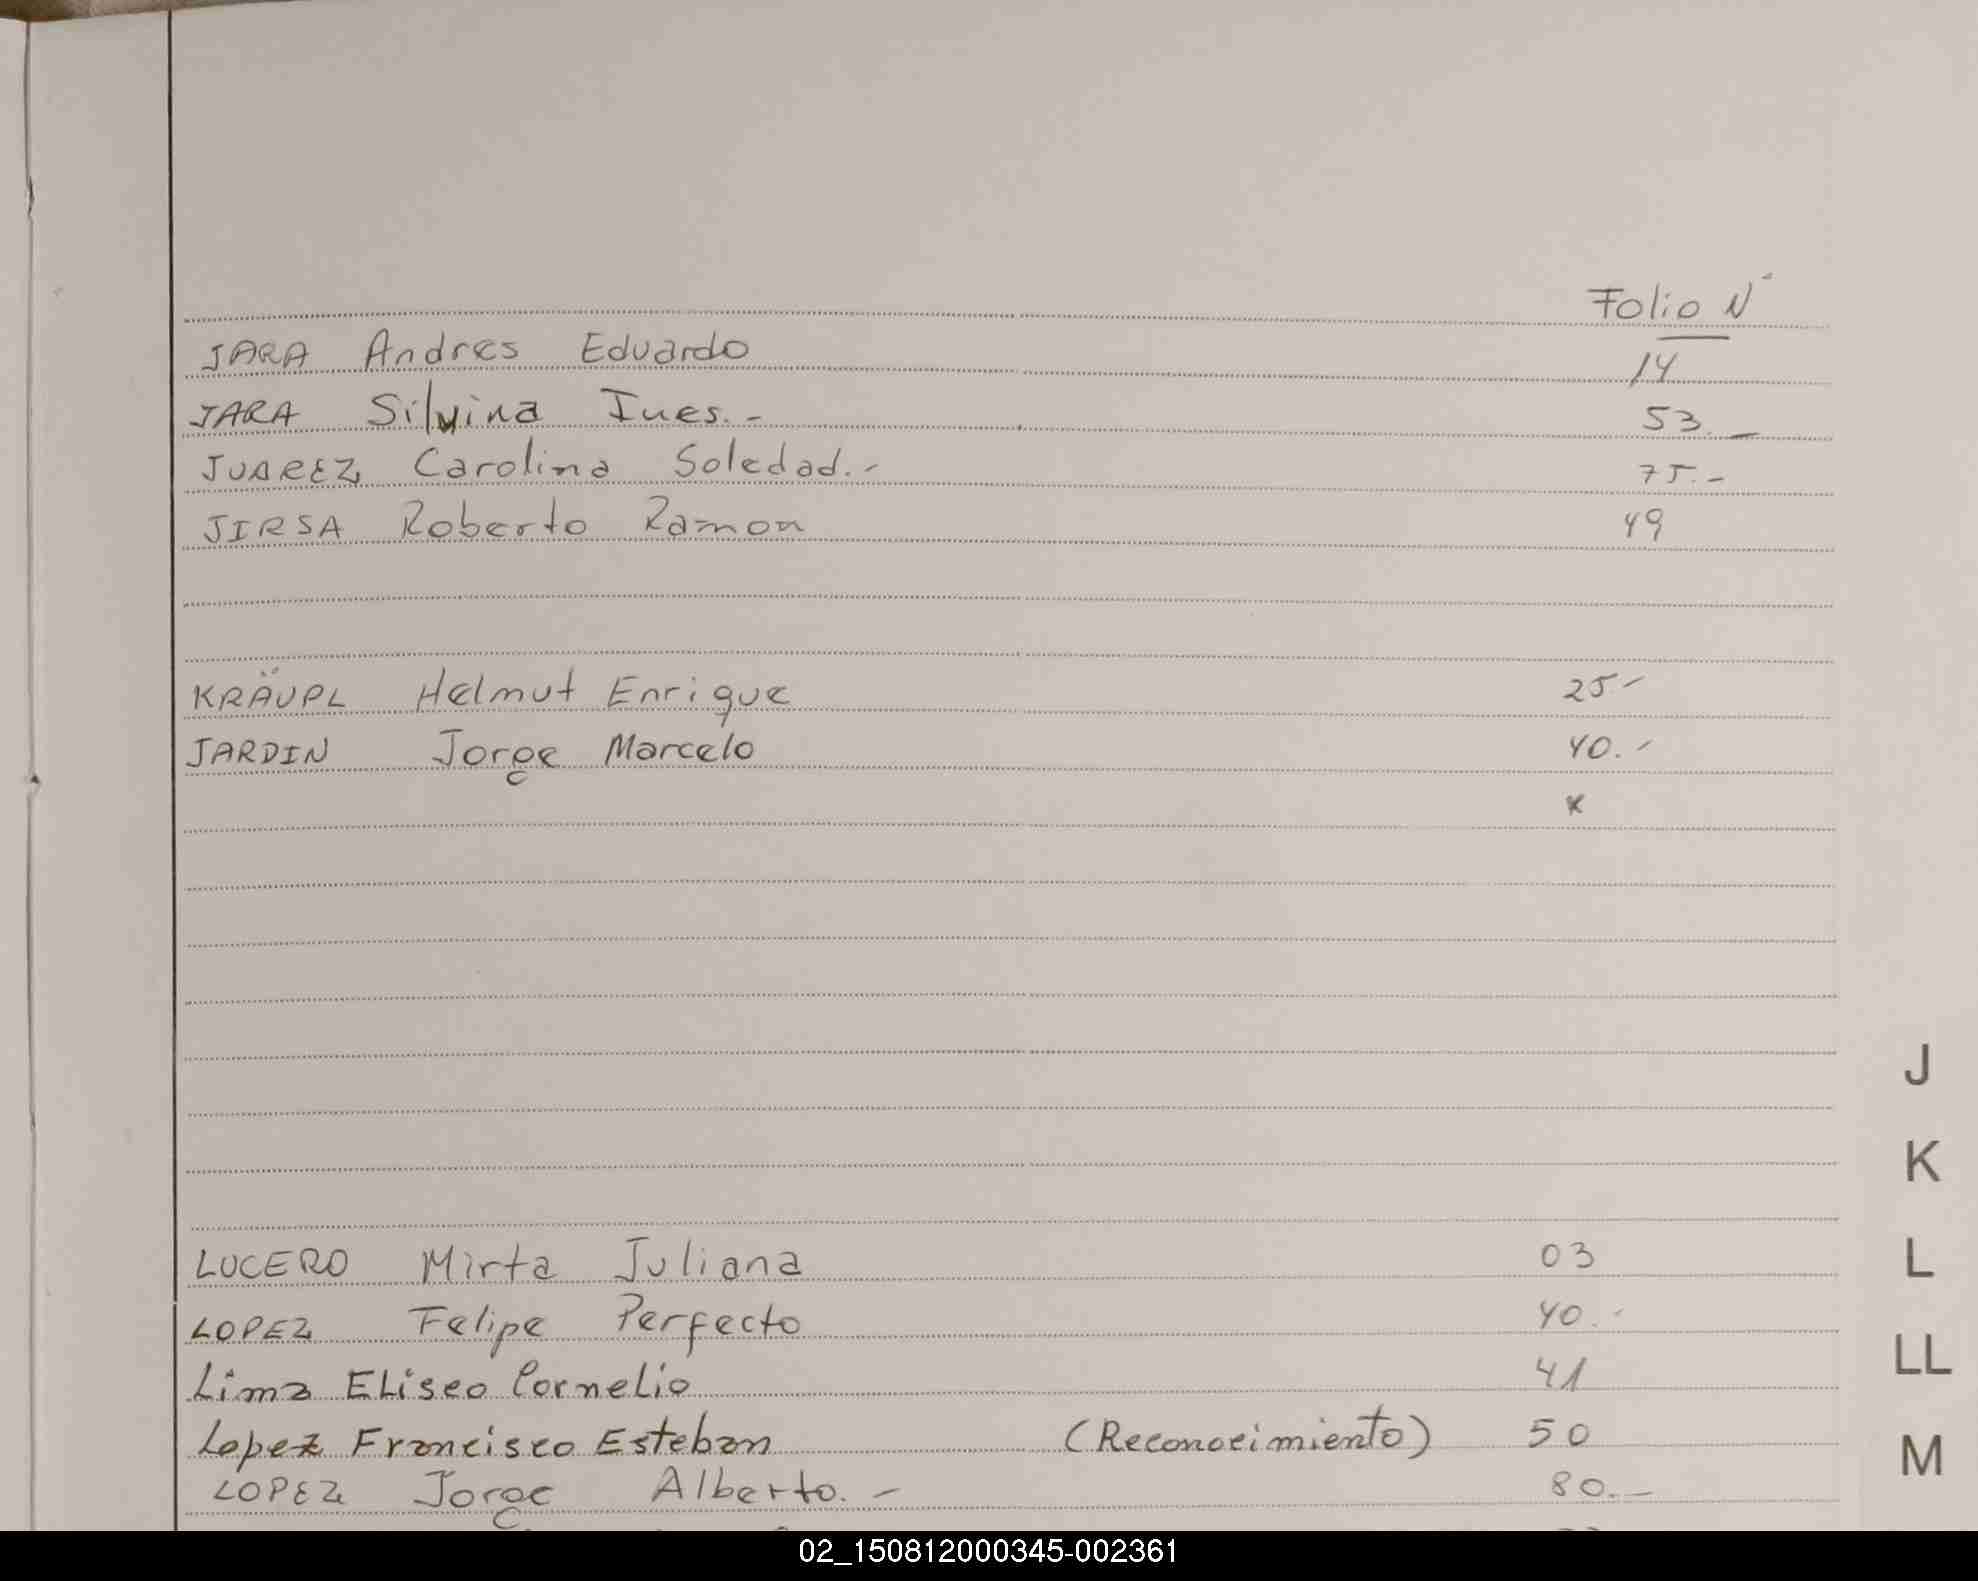 Folio Nº
JARA Andres Eduardo 14
JARA Silvina Ines.- 53.-
JUAREZ Carolina Soledad.- 75.-
JIRSA Roberto Ramon 49
KRÄUPL Helmut Enrique 25-
JARDIN Jorge Marcelo 40.-
J
K
LUCERO Mirta Juliana 03 L
LOPEZ Felipe Perfecto 40.-
Lima ELiseo Cornelio 41 LL
Lopez Francisco Esteban (Reconocimiento) 50 M
LOPEZ Jorge Alberto.- 80.-
02_150812000345-002361